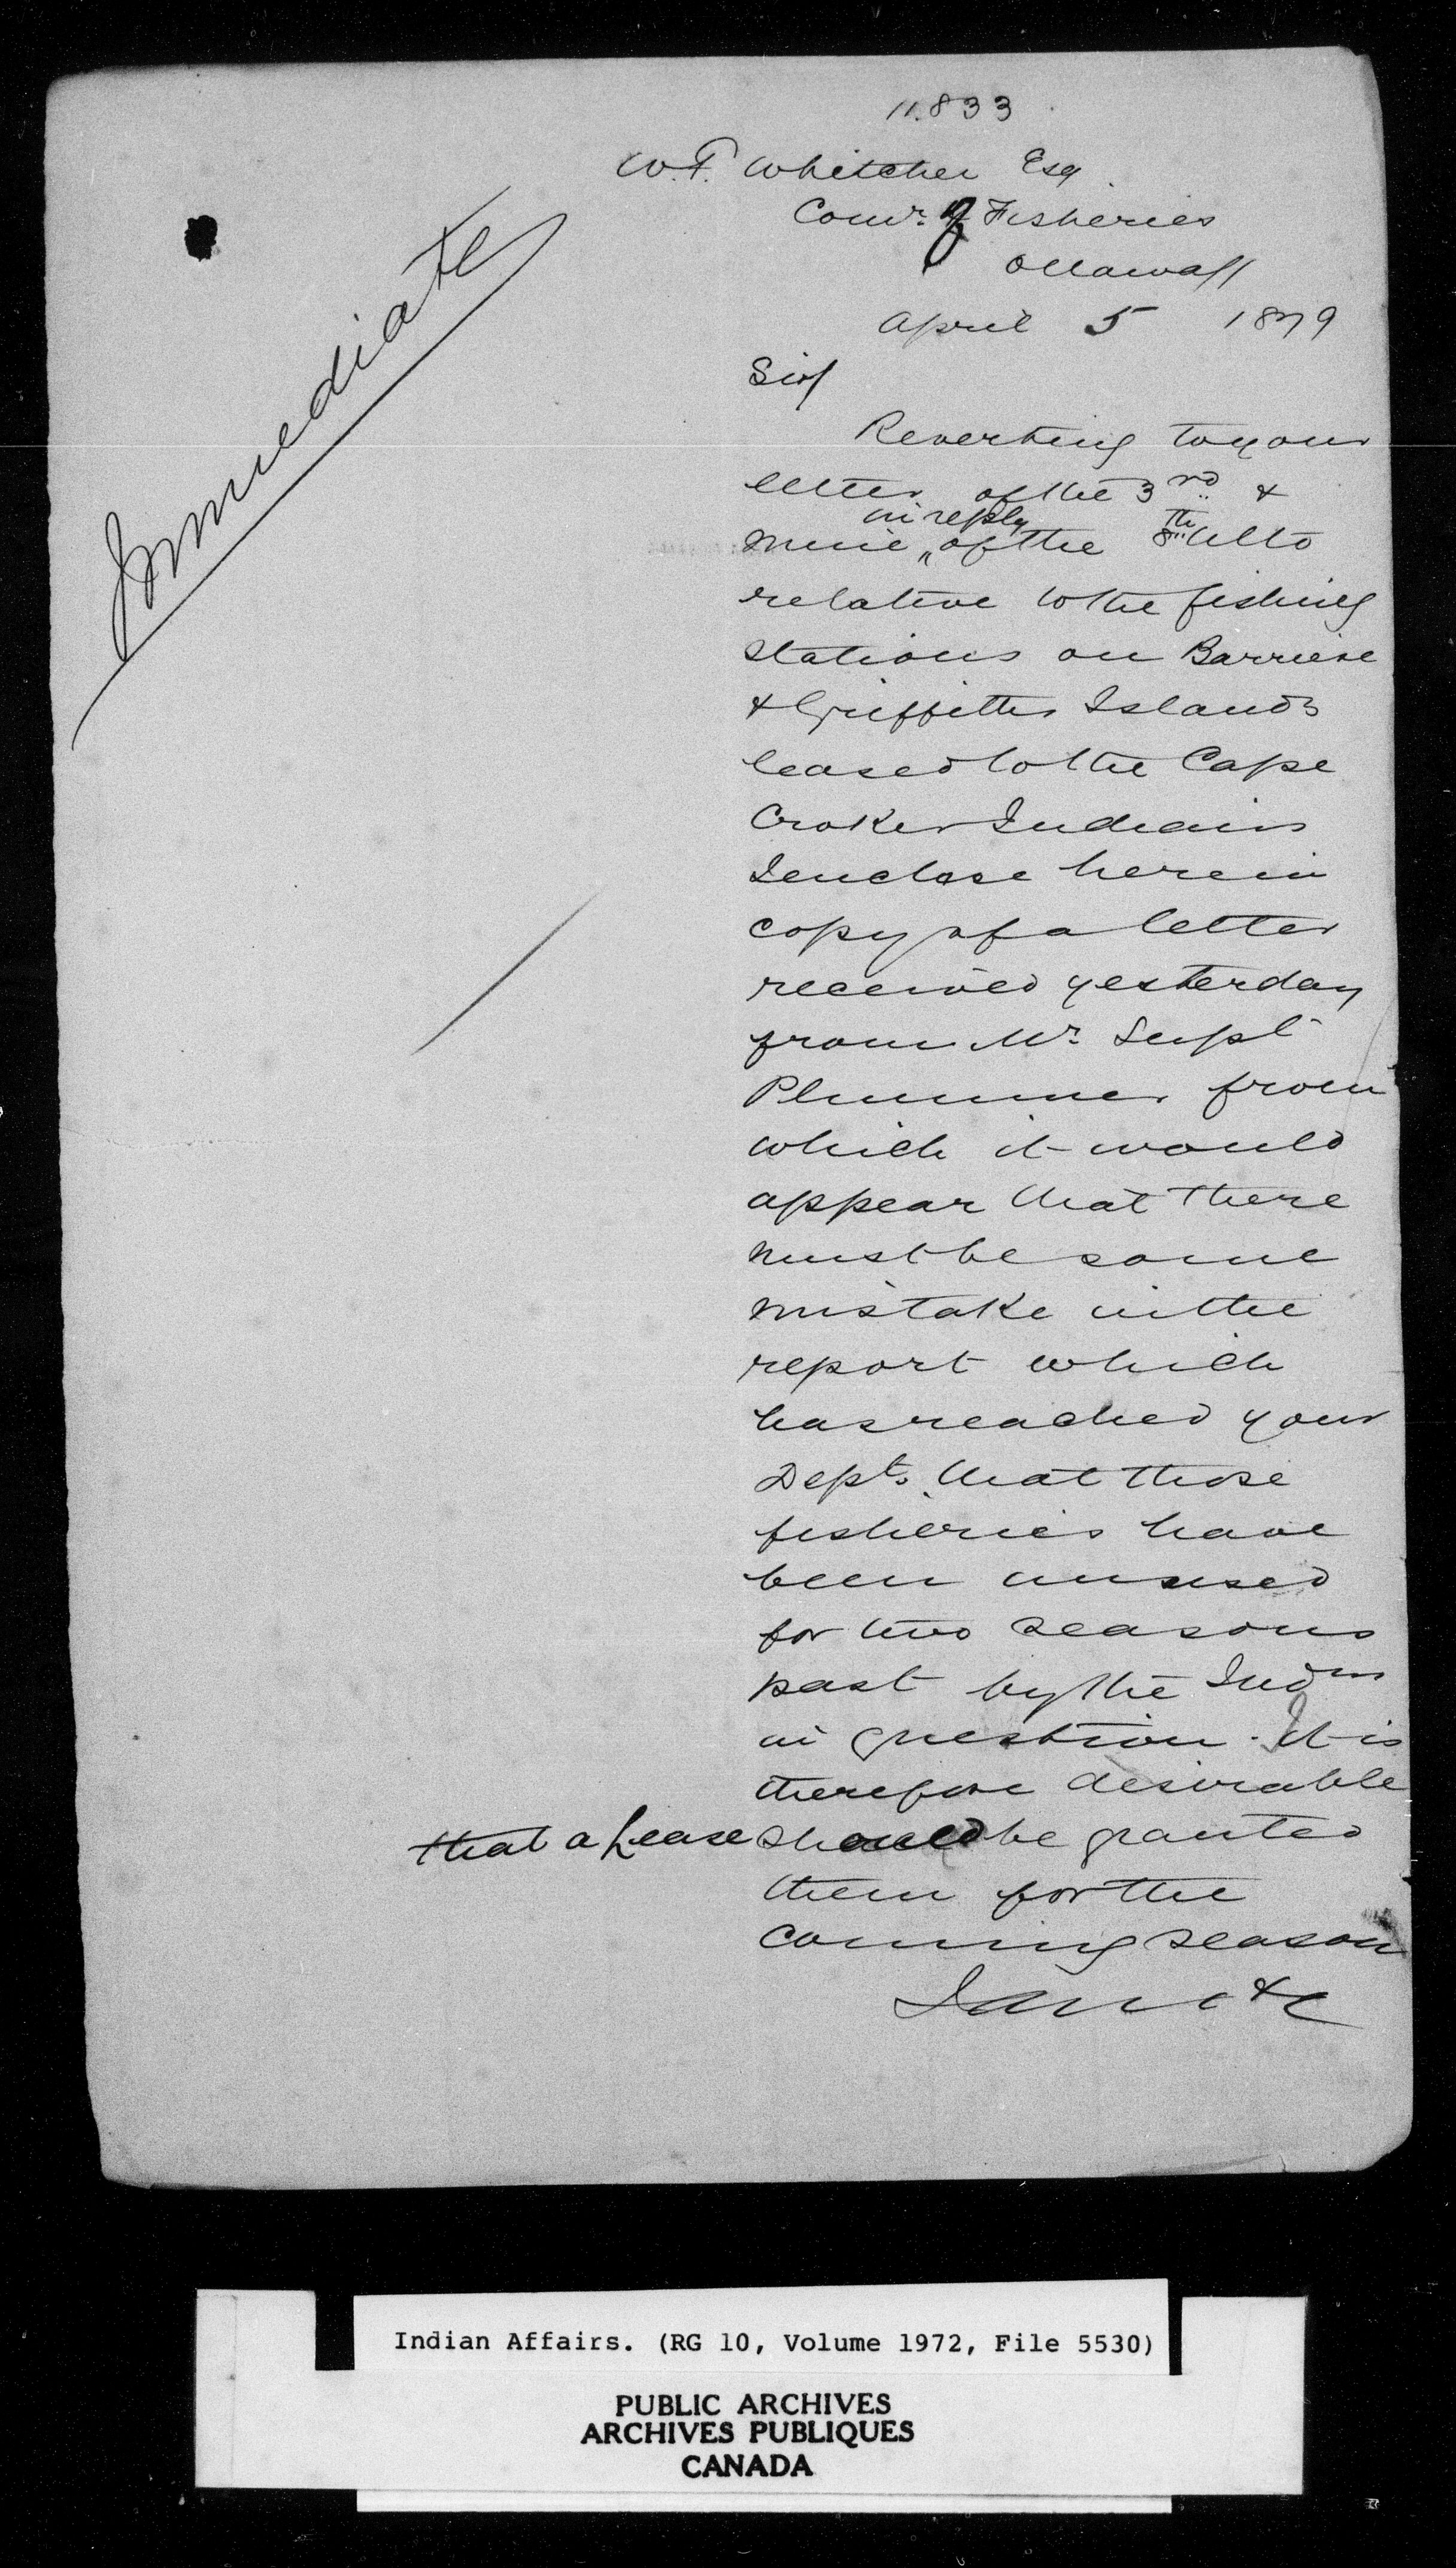 11.833
W.F. Whitcher Esq
Comr. of Fisheries
Ottawa//
April 5 1879
Immediate
Sir/
Reverting to your
letter of the 3rd &
in reply
mine " of the 8th Ulto
relative to the fishing
stations on Barriere
& Griffiths Islands
leased to the Cape
Croker Indians
I enclose herein
copy of a letter
received yesterday
from Mr. Supt
Plummer from
which it would
appear that there
must be some
mistake in the
report which
has reached your
Dept. that those
fisheries have
been unused
for two seasons
past by the Indns
in question. It is
therefore desirable
that a Lease should be granted
them for the
coming season
I am &c
Indian Affairs. (RG 10, Volume 1972, File 5530)
PUBLIC ARCHIVES
ARCHIVES PUBLIQUES
CANADA